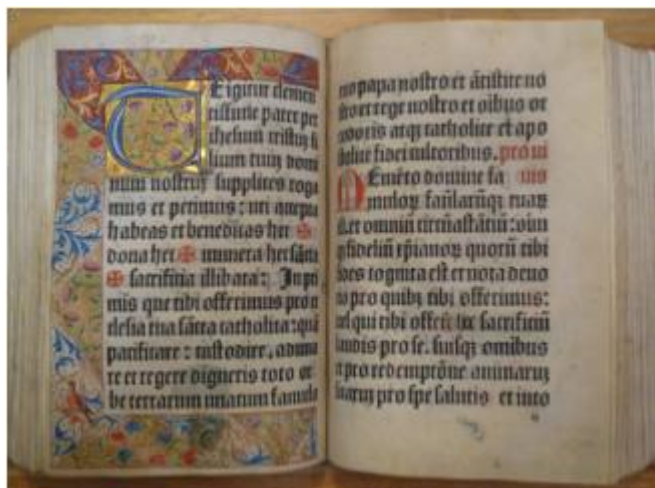 E igitur clemen
tissime pater per
ihesum cristuʒ fi
lium tuuʒ domi
num nostruʒ supplices roga
mus et petimus: uti accepta
habeas et benedicas hec ✠
dona hec ✠ munera hec sācta
✠ sacrificia illibata: In pri
mis que tibi offerimus pro e
clesia tua sācta catholica: quā
pacificare: custodire, aduna
re et regere digneris toto or
be terrarum unacum famulo
papa nostro et ātistite no
stro et rege nostro et oībus or
atqʒ catholice et apo
fidei cultoribus. pro ui
Emēto domine fa uis
muloꝝ famlarūqʒ tuaꝝ
et omniū circūastātiū: oīm
fideliū xp̄ianoꝝ quorū tibi
fides cognita est et nota deuo
pro quibʒ tibi offerimus:
uel qui tibi offerūt hoc sacrificiū
laudis pro se. suisqʒ omnibus
pro redemptōne animaruʒ
suaruʒ pro spe salutis et inco